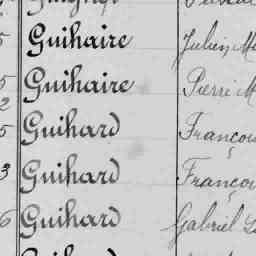 5 Guihaire Julien M
5 Guihaire Pierre M
2
5 Guihard Françoi
3 Guihard Françoi
6 Guihard Gabriel L